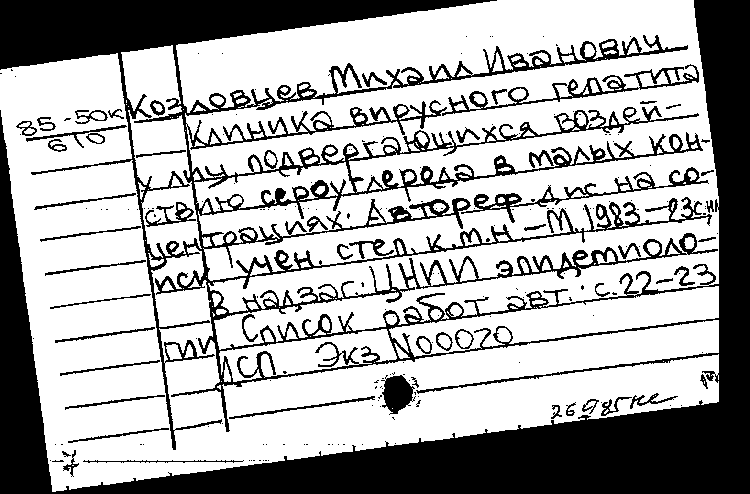 Козловцев, Михаил Иванович
85-50к
610
Клиника вирусного гепатита
у лиц, подвергающихся воздей-
ствию сероуглерода в малых кон-
центрациях: Автореф. дис на со-
иск учен. степ. к.м.н. - М., 1983. - 23с.
В надзаг: ЦНИИ эпидемиоло-
гии. Список работ авт.: с.22-23
ДСП. Экз N00070